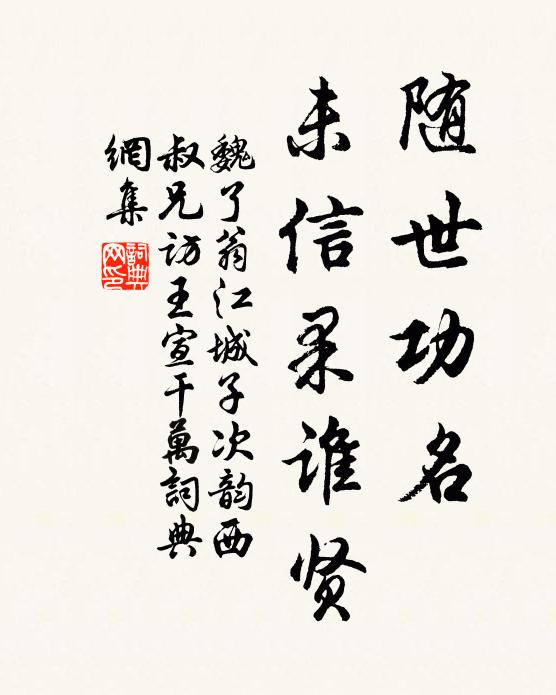 随世功名
未信果谁贤
魏了翁江城子次韵西
叔兄访王宣干萬詞典
網集
詞典
网印